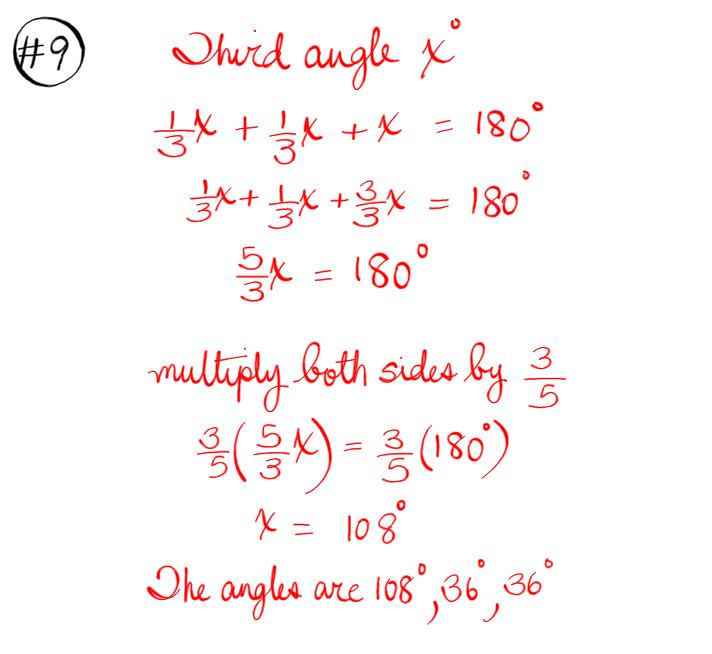 #9 Third angle x°
1/3x + 1/3x + x = 180°
1/3x + 1/3x + 3/3x = 180°
5/3x = 180°
multiply both sides by 3/5
3/5(5/3x) = 3/5(180°)
x = 108°
The angles are 108°, 36°, 36°